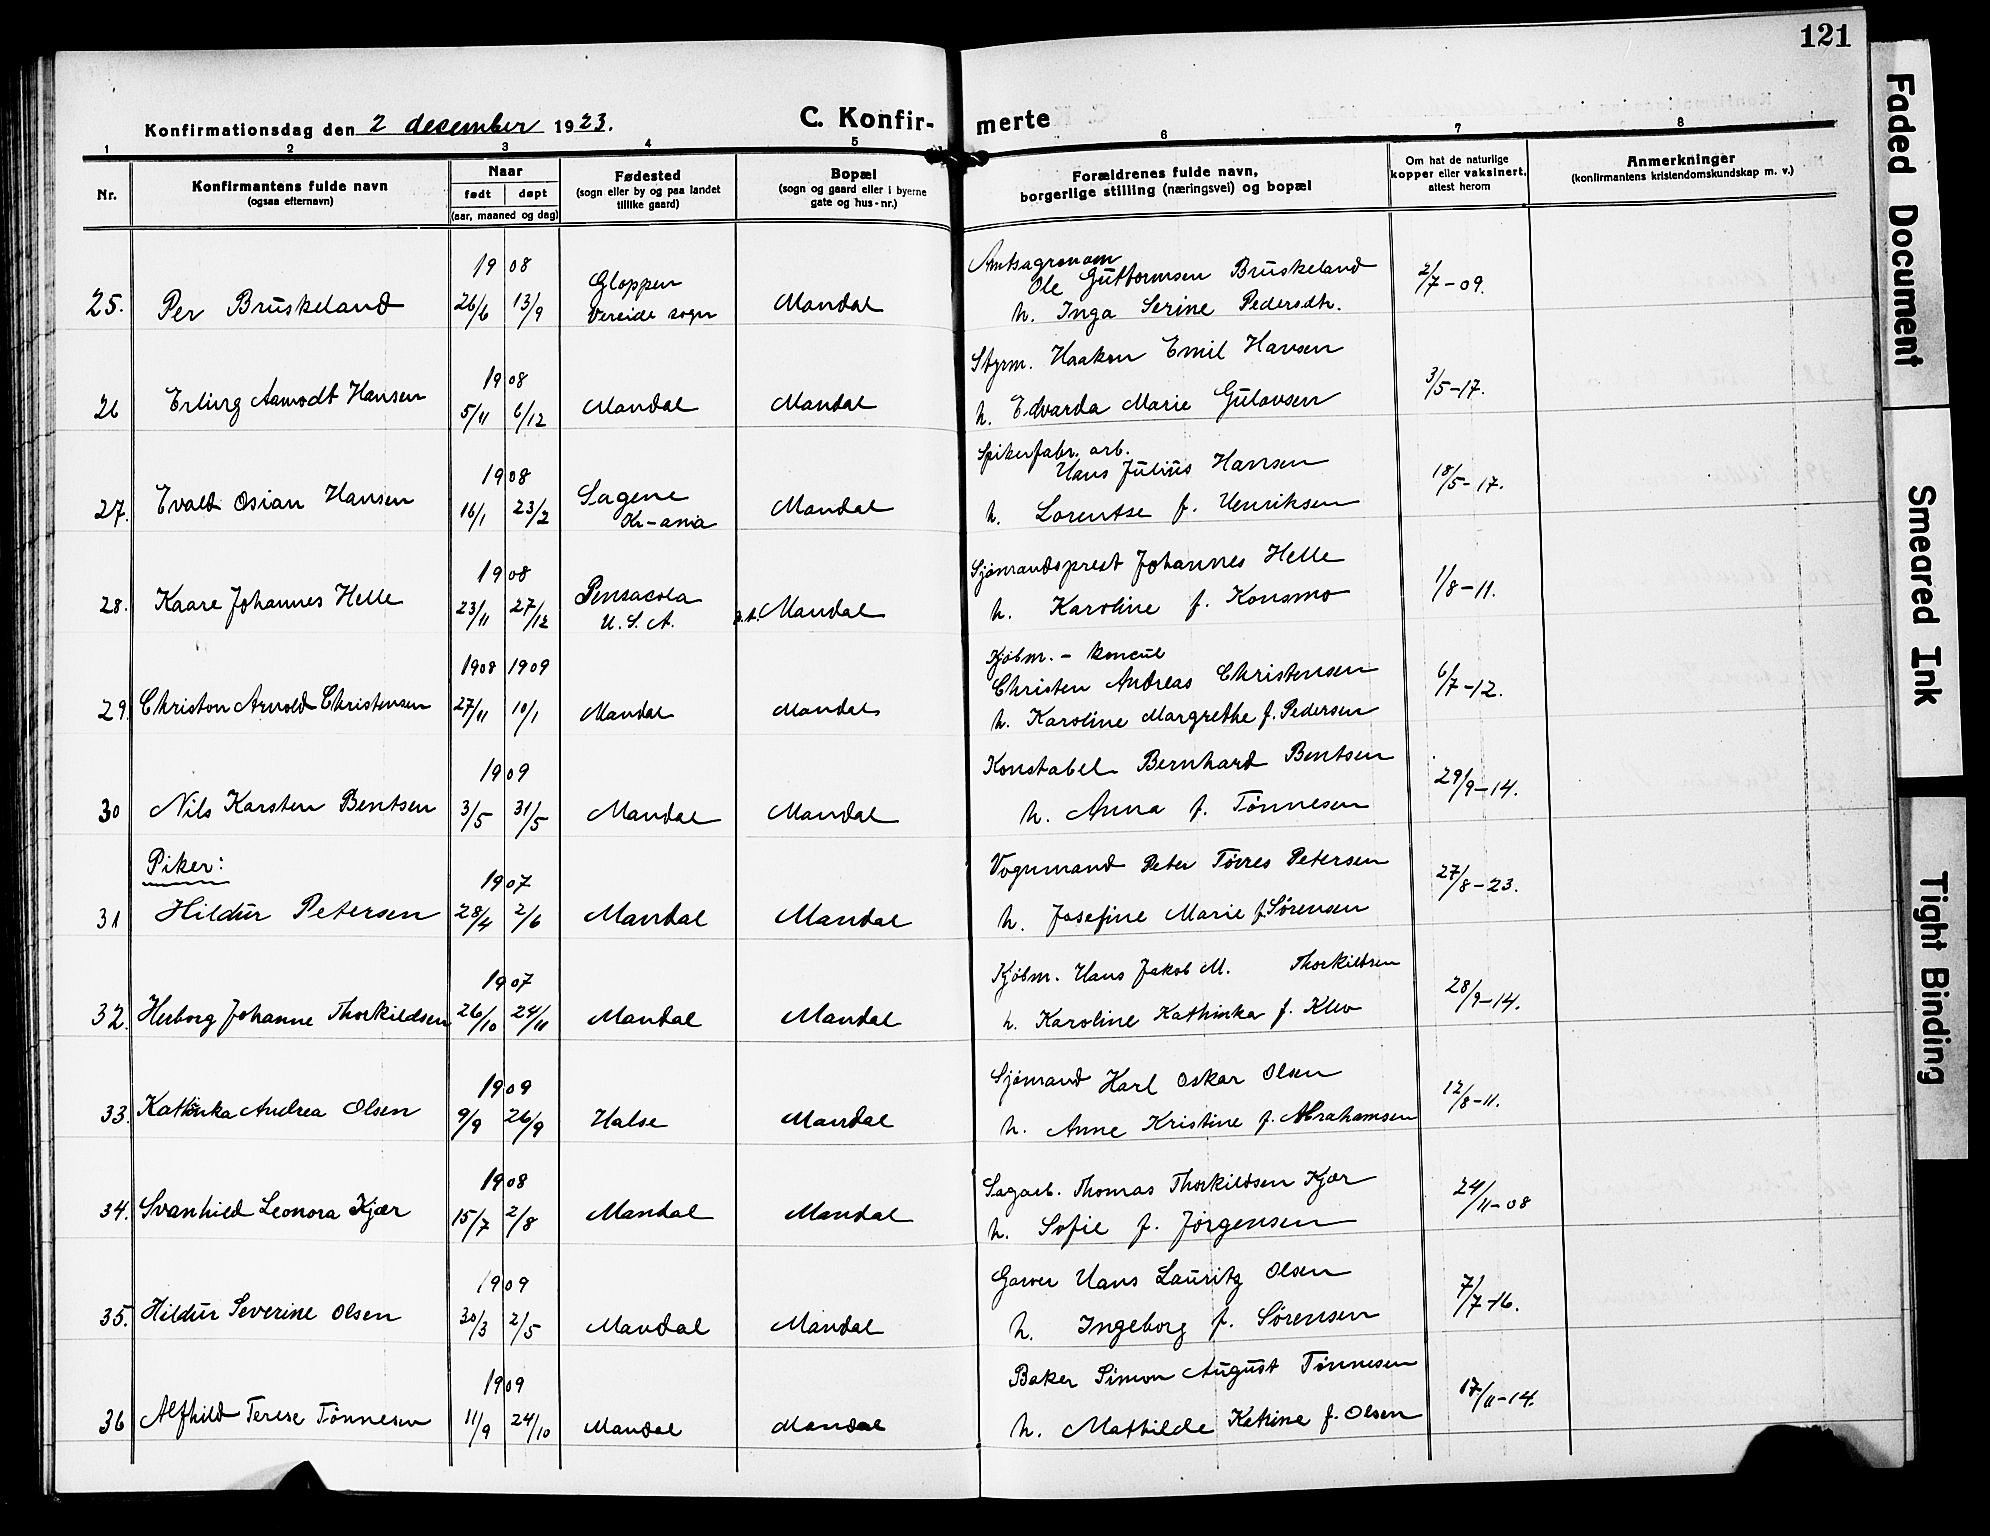 121
Konfirmationsdag den 2 december 1923.
C. Konfir- merte
1 2 3 4 5 6 7 8
Nr.
Konfirmantens fulde navn
(ogsaa efternavn)
Naar
født døpt
(aar, maaned og dag)
Fødested
(sogn eller by og paa landet
tillike gaard)
Bopæl
(sogn og gaard eller i byerne
gate og hus-nr.)
Forældrenes fulde navn,
borgerlige stilling (næringsvei) og bopæl
Om hat de naturlige
kopper eller vaksinert,
attest herom
Anmerkninger
(konfirmantens kristendomskundskap m. v.)
1908
Amtsagronom
25. Per Bruskeland 26/6 13/9 Gloppen
Vereide sogn Mandal Ole Guttormsen Bruskeland 2/7-09.
h. Inga Serine Pedersdtr.
1908
Styrm. Haakon Emil Hansen
26 Erling Aamodt Hansen 5/11 6/12 Mandal Mandal h. Edvarda Marie Gulovsen 3/5-17.
1908
Spikerfabr. arb.
Hans Julius Hansen
27. Evald Osian Hansen 16/1 23/2 Sagene
Kr-ania Mandal h. Lorentse f. Henriksen 18/5-17.
1908
Sjømandsprest Johannes Helle
28. Kaare Johannes Helle 23/11 27/12 Pensacola
U.S.A. Mandal h. Karoline f. Konsmo 1/8-11.
1908 1909
Kjøbm. - konsul
Christen Andreas Christensen
29. Christon Arnold Christensen 27/11 10/1 Mandal Mandal h. Karoline Margrethe f. Pedersen 6/7-12.
1909
Konstabel Bernhard Bentsen
30 Nils Karsten Bentsen 3/5 31/5 Mandal Mandal h. Anna f. Tønnesen 29/9-14.
Piker:
1907
Vognmand Peter Tørres Petersen
31 Hildur Petersen 28/4 2/6 Mandal Mandal h. Josefine Marie f. Sørensen 27/8-23.
1907
Kjøbm. Hans Jakob M. Thorkildsen
32. Herborg Johanne Thorkildsen 26/10 24/11 Mandal Mandal h. Karoline Kathinka f. Klev 28/9-14.
1909
Sjømand Karl Oskar Olsen
33. Kathinka Andrea Olsen 9/9 26/9 Halse Mandal h. Anne Kristine f. Abrahamsen 12/8-11.
1908
Sagarb. Thomas Thorkildsen Kjær
34. Svanhild Leonora Kjær 15/7 2/8 Mandal Mandal h. Sofie f. Jørgensen 24/11-08
1909
Garver Hans Lauritz Olsen
35. Hildur Severine Olsen 30/3 2/5 Mandal Mandal h. Ingeborg f. Sørensen 7/7-16.
1909
Baker Simon August Tønnesen
36 Alfhild Terese Tønnesen 11/9 24/10 Mandal Mandal h. Mathilde Katrine f. Olsen 17/11-14.
Faded Document
Smeared Ink
Tight Binding